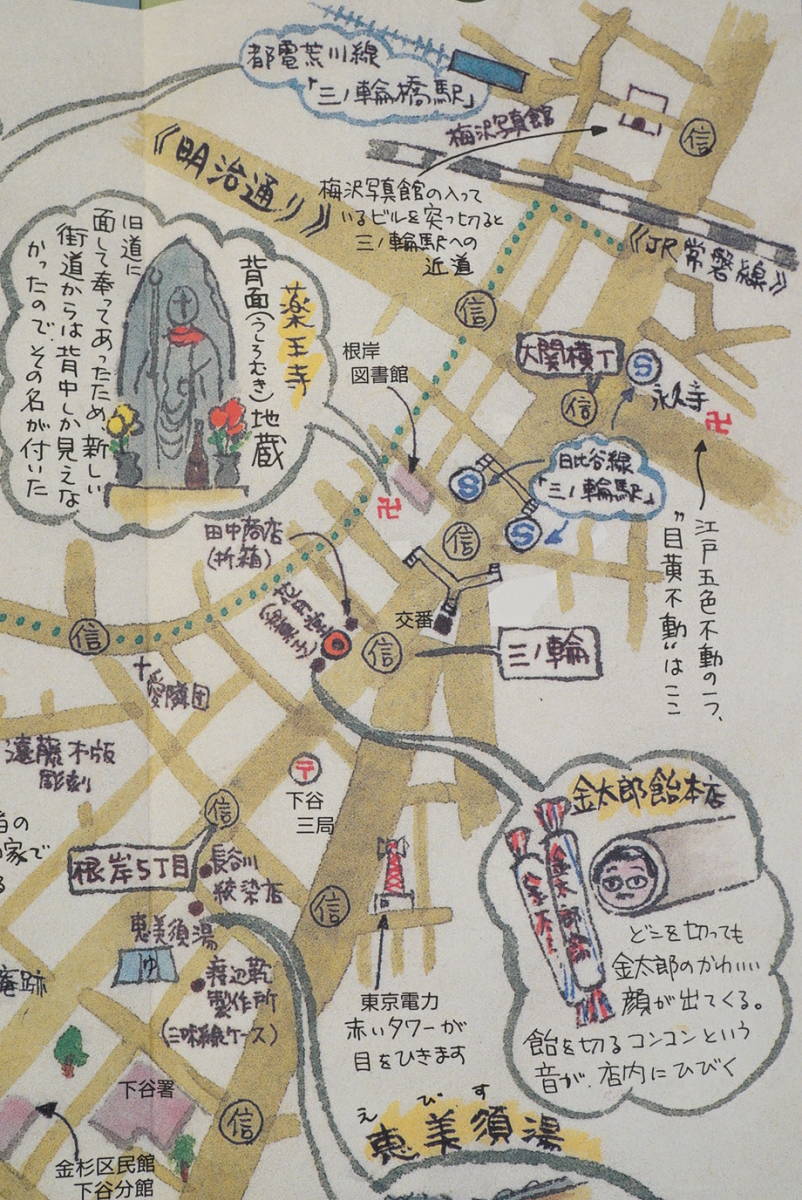 都電荒川線
「三ノ輪橋駅」
梅沢写真館
信
《明治通り》
梅沢写真館の入って
いるビルを突っ切ると
三ノ輪駅への
近道
《JR常磐線》
信
薬王寺
背面(うしろむき)地蔵
旧道に
面して奉ってあったため、新しい
街道からは背中しか見えな
かったので、その名が付いた
根岸
図書館
大関横丁
S
信
永久寺
卍
日比谷線
「三ノ輪駅」
S
S
卍
信
江戸五色不動の一つ、
"目黄不動"はここ
田中商店
(折箱)
交番
信
三ノ輪
信
愛隣団
遠藤木版
彫刻
〒
下谷
三局
信
根岸5丁目
長谷川
絞染店
恵美須湯
ゆ
渡辺靴
製作所
(三味線ケース)
信
東京電力
赤いタワーが
目をひきます
金太郎飴本店
金太郎飴
どこを切っても
金太郎のかわいい
顔が出てくる。
飴を切るコンコンという
音が、店内にひびく
家で
庵跡
下谷署
信
金杉区民館
下谷分館
えびす
恵美須湯